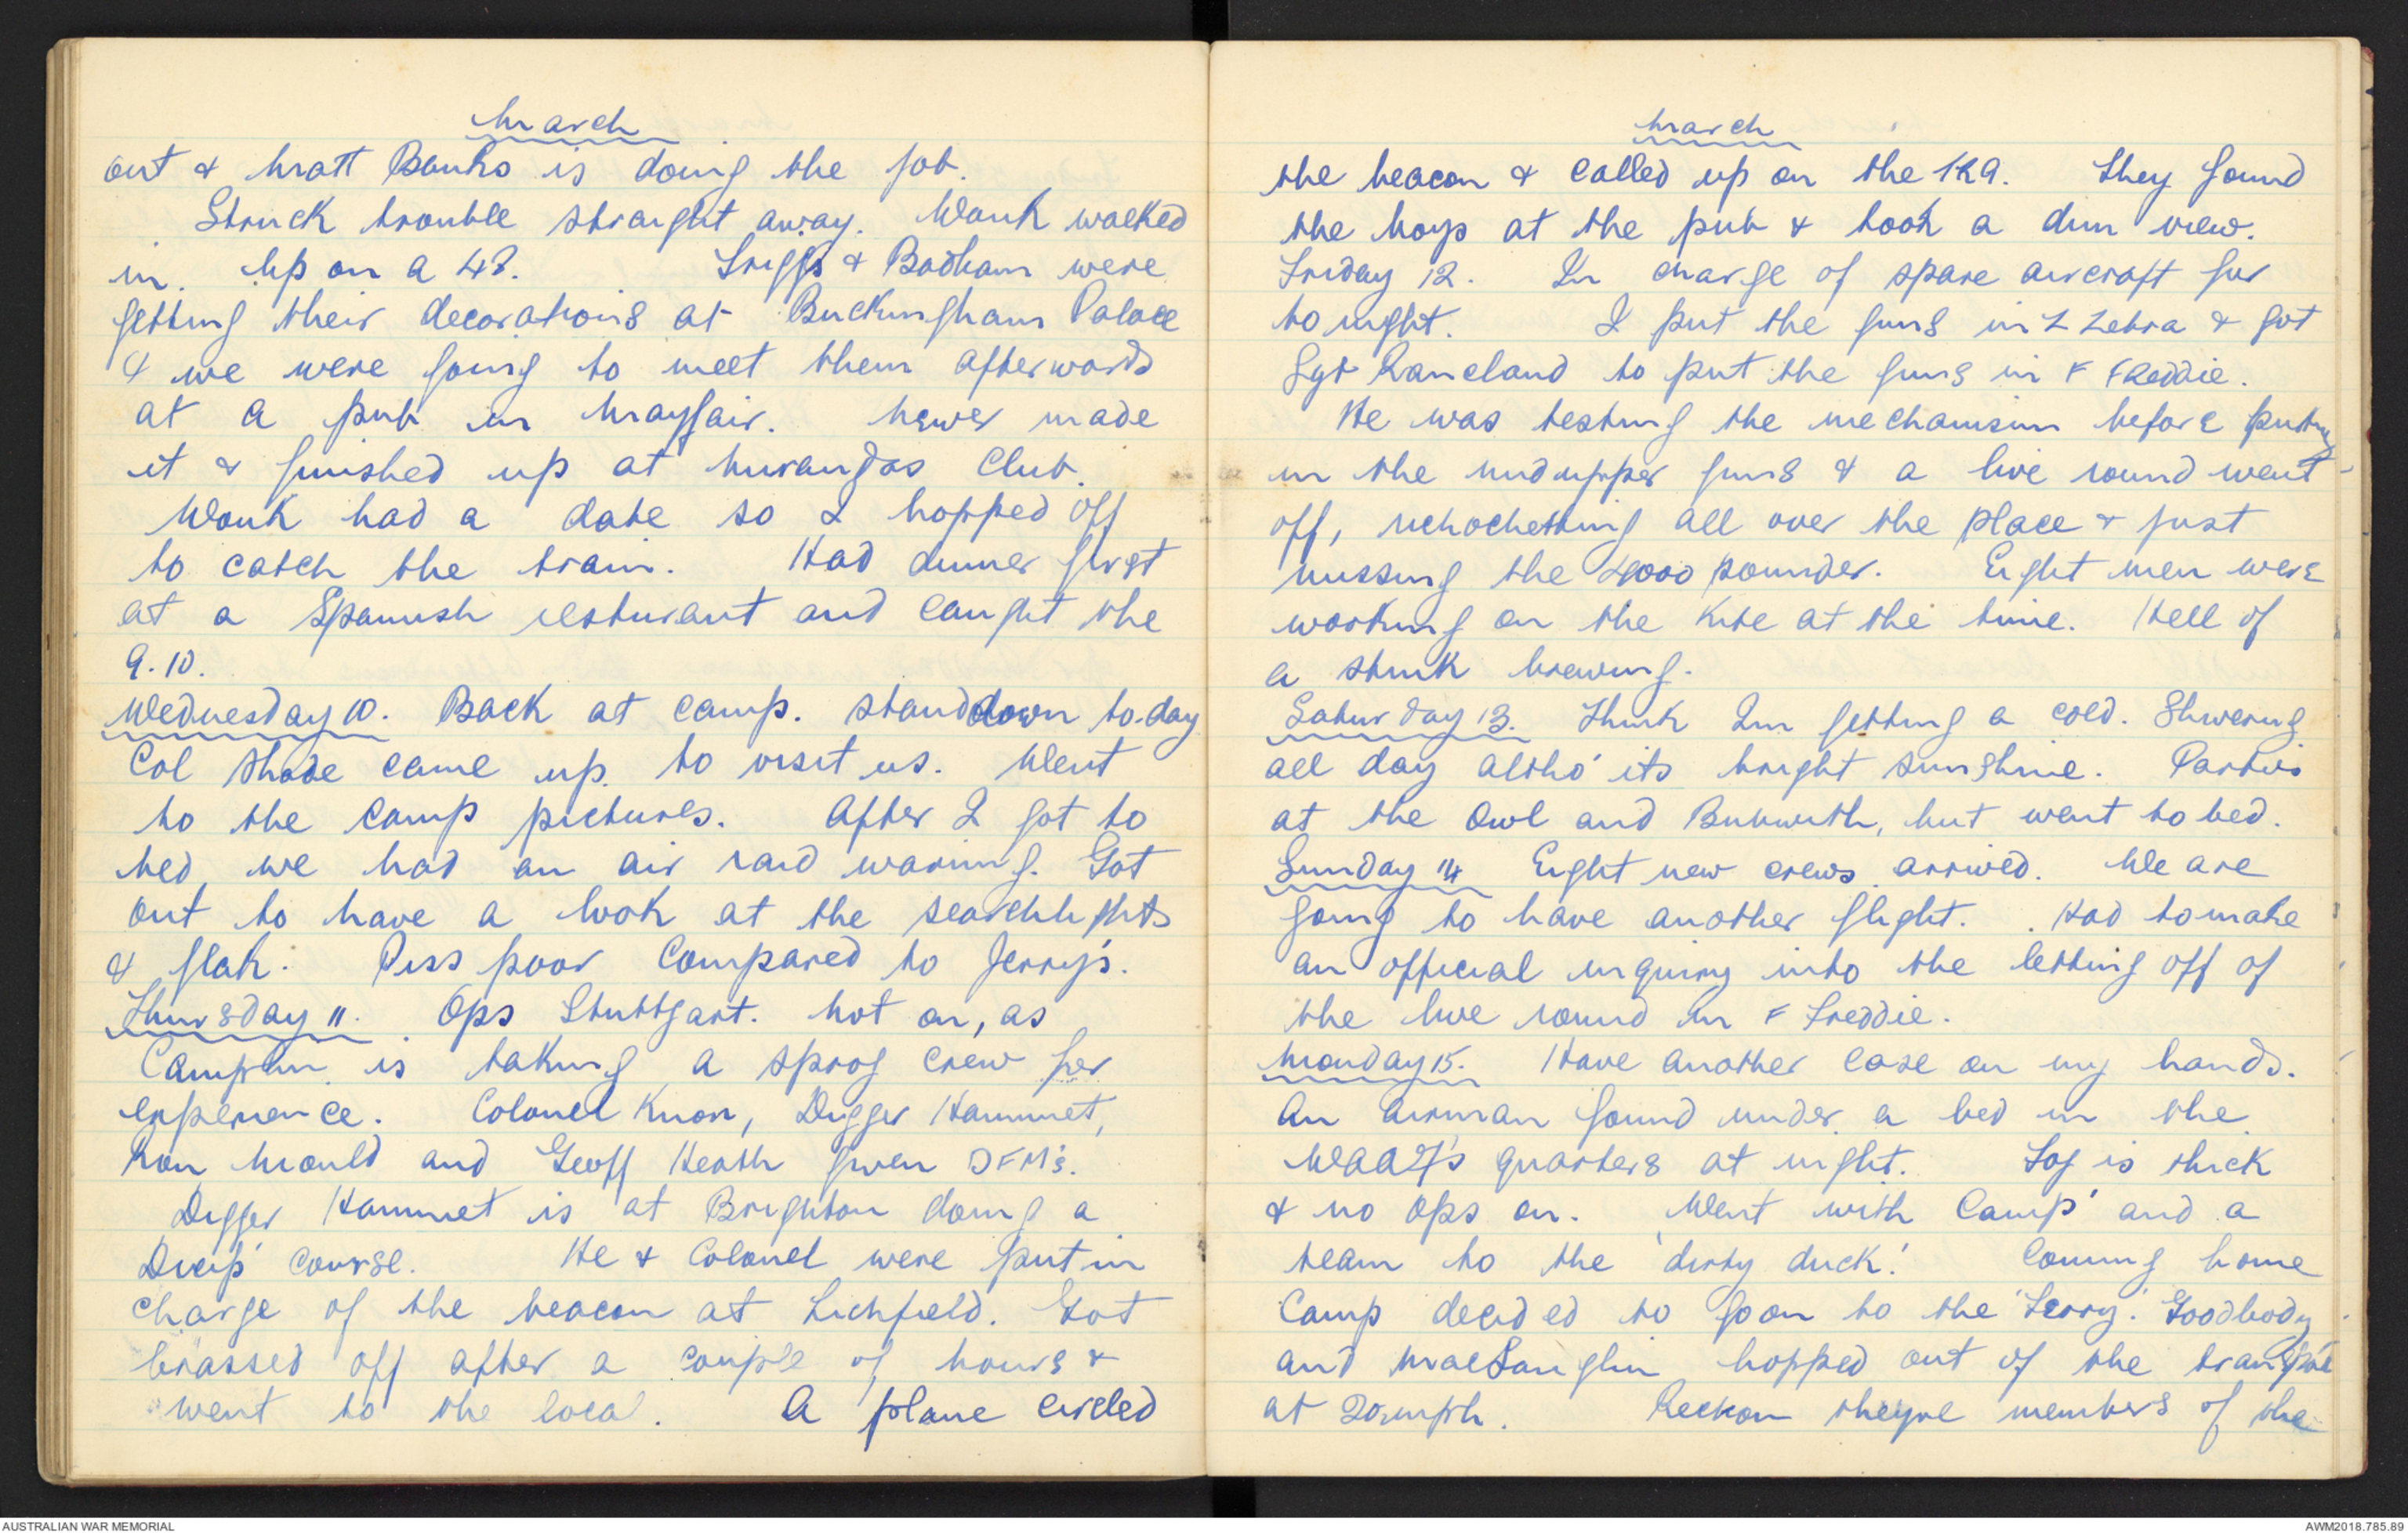 March
out & Matt Banks is doing the job.
Struck trouble straight away. Wonk walked
in. Up on a 48. Griggs & Badham were
getting their decorations at Buckingham Palace
& we were going to meet them afterwards
at a pub in Mayfair. Never made
it & finished up at Mirandas Club.
Wonk had a date so I hopped off
to catch the train. Had dinner first
at a Spanish resturant and caught the
9.10.
Wednesday 10. Back at camp. Standdown to-day
Col Shade came up to visit us. Went
to the camp pictures. After I got to
bed we had an air raid waring. Got
out to have a look at the searchlights
& flak. Piss poor compared to Jerry's.
Thursday 11. Ops Stuttgart. Not on, as
Camplin is taking a sprog crew for
experience. Colonel Knox, Digger Hammet,
Ron Mould and Geoff Heath given DFM's.
Digger Hammet is at Brighton doing a
Discip' course. He & Colonel were put in
charge of the beacon at Lichfield. Got
brassed off after a couple of hours &
went to the local. A plane circled
March
the beacon & called up on the 129. They found
the boys at the pub & took a dim view.
Friday 12. In charge of spare aircraft for
to night. I put the guns in Z Zebra & got
Sgt Ranclaud to put the guns in F Freddie.
He was testing the mechanism before puting
in the midupper guns & a live round went
off, richochetting all over the place & just
missing the 4000 pounder. Eight men were
working on the kite at the time. Hell of
a stink brewing.
Saturday 13. Think Im getting a cold. Shivering
all day altho' its bright sunshine. Parties
at the Owl and Bubwith, but went to bed.
Sunday 14 Eight new crews arrived. We are
going to have another flight. Had to make
an official inquiry into the letting off of
the live round in F Freddie.
Monday 15. Have another case on my hands.
An airman found under a bed in the
WAAF's quarters at night. Fog is thick
& no ops on. Went with Camp' and a
team to the 'dirty duck.' Coming home
Camp decided to go on to the 'Ferry'. Goodbody
and MacLauglin hopped out of the transport
at 20 mph. Reckon theyre members of the
AUSTRALIAN WAR MEMORIAL
AWM2018.785.89